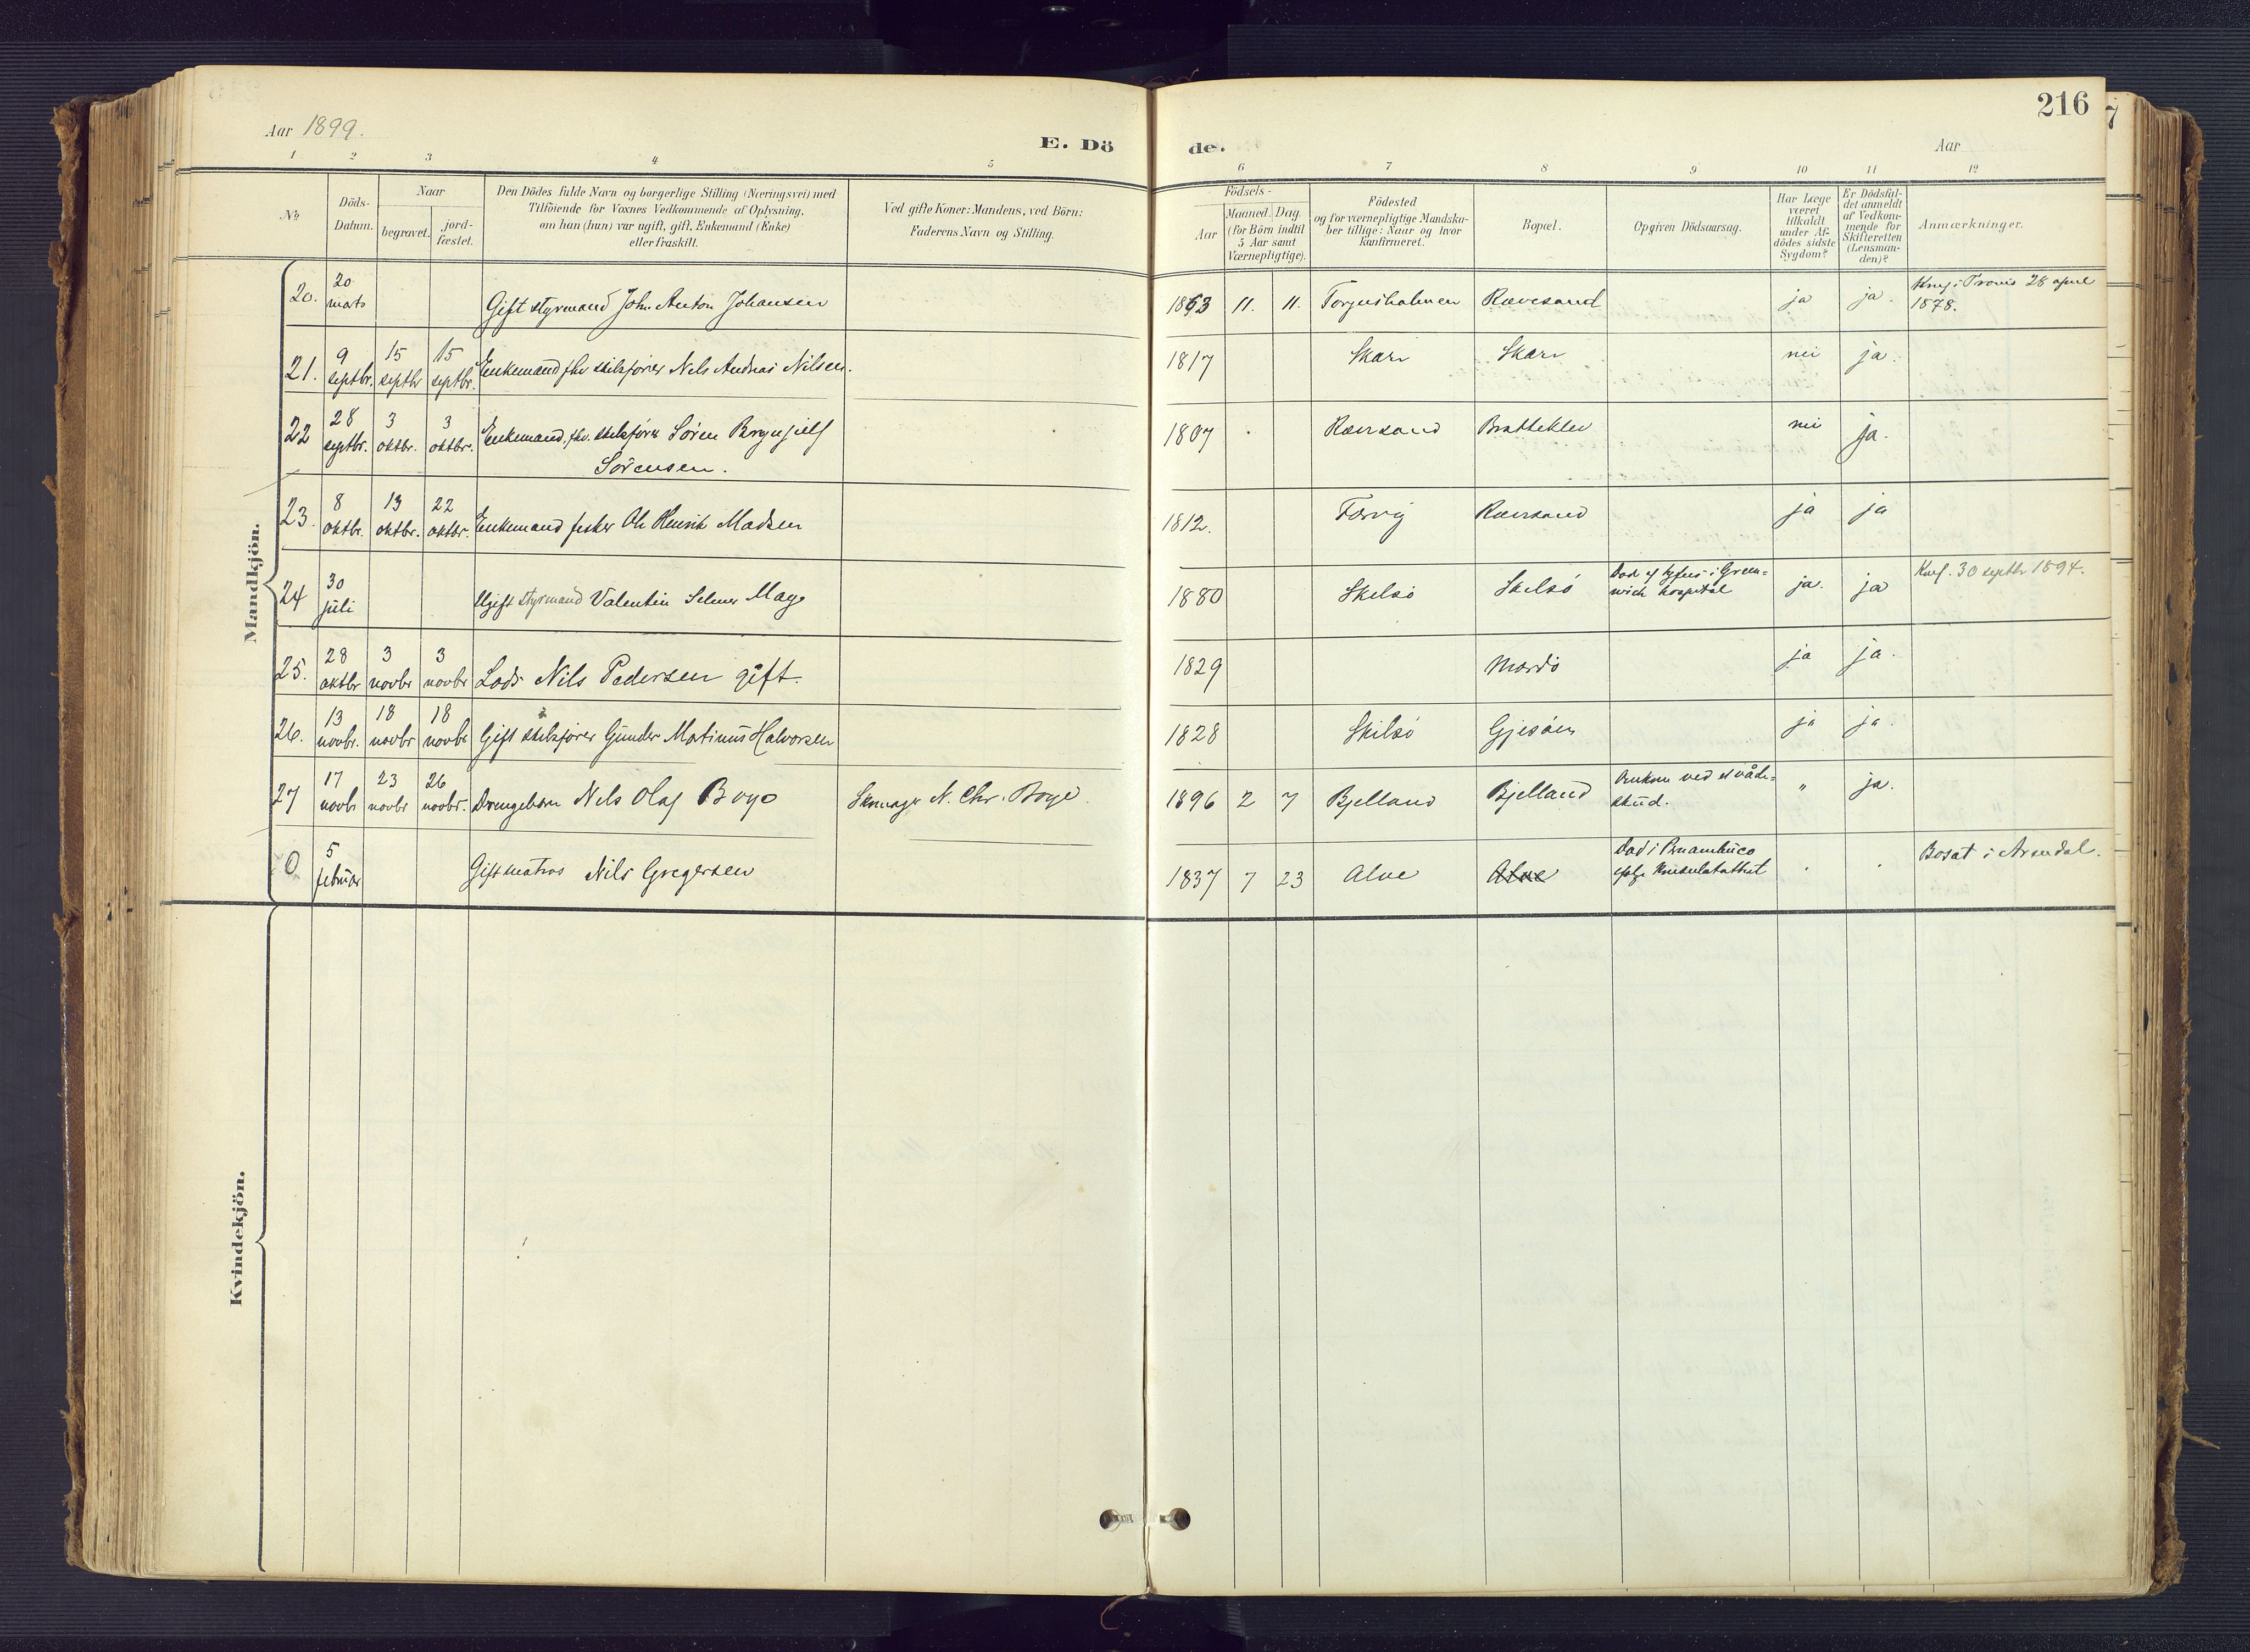 216
Aar 1899.
E. Dö
de.
Aar
1 2 3 4 5
6 7 8 9 10 11 12
No
Döds-
Datum.
Naar
begravet.
jord-
fæstet.
Den Dödes fulde Navn og borgerlige Stilling (Næringsvei) med
Tilföiende for Voxnes Vedkommende af Oplysning,
om han (hun) var ugift, gift, Enkemand (Enke)
eller fraskilt.
Ved gifte Koner: Mandens, ved Börn:
Faderens Navn og Stilling.
Födsels-
Aar
Maaned. Dag.
(for Börn indtil
5 Aar samt
Værnepligtige).
Födested
og for værnepligtige Mandska-
ber tillige: Naar og hvor
konfirmeret.
Bopæl.
Opgiven Dödsaarsag.
Har Læge
været
tilkaldt
under Af-
dödes sidste
Sygdom?
Er Dödsfal-
det anmeldt
af Vedkom-
mende for
Skifteretten
(Lensman-
den)?
Anmærkninger.
Mandkjön.
20. 20 mats Gift styrmand John Anton Johansen 1863 11. 11. Torjusholmen Rævesand ja ja. 28 april
1878.
21. 9 septbr. 15 septbr 15 septbr. Enkemand fhv skibsfører Nils Andreas Nilsen. 1817 Skare Skare nei ja.
22 28 septbr. 3 oktbr. 3 oktbr. Enkemand, fhv. skibsfører Sören Brynjulf
Sörensen. 1807 Rævesand Bratteklev nei ja.
23. 8 oktbr. 13 oktbr. 22 oktbr. Enkemand fisker Ole Henrik Madsen 1812. Færvig Rævesand ja ja
24 30 juli Ugift styrmand Valentin Selmer May 1880 Skilsö Skilsö Död af tyfus i Green=
wich hospital ja. ja Konf. 30 septbr 1894.
25. 28 oktbr 3 novbr 3 novbr Lods Nils Pedersen gift. 1829 Mærdö ja ja.
26. 13 novbr. 18 novbr 18 novbr Gift skibsfører Gunder Martinus Halvorsen 1828 Skilsö Gjesöen ja ja.
27 17 novbr 23 novbr 26 novbr. Drengebarn Nils Olaf Boye Skomager N. Chr. Boye. 1896 2 7 Bjelland Bjelland Omkom ved et våde=
skud. " ja.
0 5 februar Gift matros Nils Gregersen 1837 7 23 Alve Alve Död i Pernambuco
ifølge Konsulatattest Bosat i Arendal.
Kvindekjön.